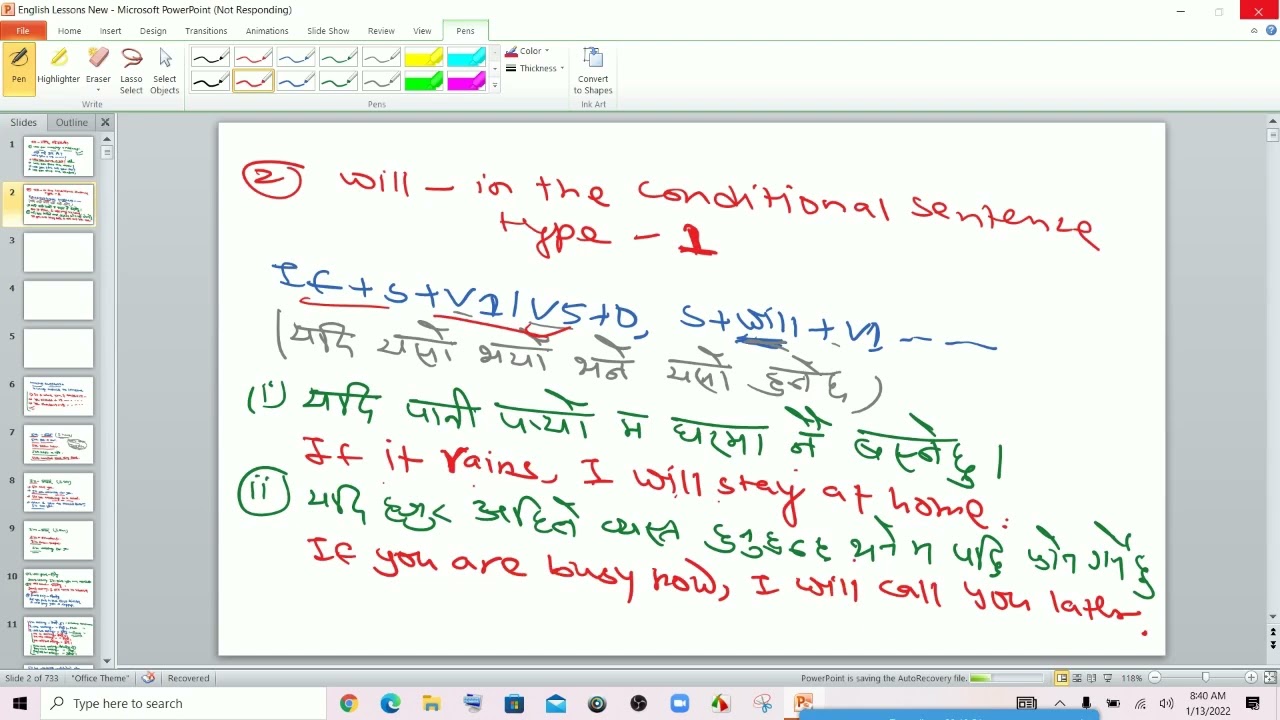 English Lessons New - Microsoft PowerPoint (Not Responding)
File Home Insert Design Transitions Animations Slide Show Review View Pens
Pen Highlighter Eraser Lasso Select Select Objects Color Thickness Convert to Shapes
Write Pens Ink Art
Slides Outline
1
2
3
4
5
6
7
8
9
10
11
② will - in the conditional sentence
type - 1
If + S + V1/V5 + O, S + will + V1 - - -
(यदि यसो भयो भने यसो हुनेछ)
(i) यदि पानी पर्‍यो म घरमा नै बस्नेछु।
If it rains, I will stay at home.
(ii) यदि हजुर अहिले व्यस्त हुनुहुन्छ भने म पछि फोन गर्नेछु
If you are busy now, I will call you later.
Slide 2 of 733 "Office Theme" Recovered PowerPoint is saving the AutoRecovery file. 118%
Type here to search
8:40 AM
1/13/2022